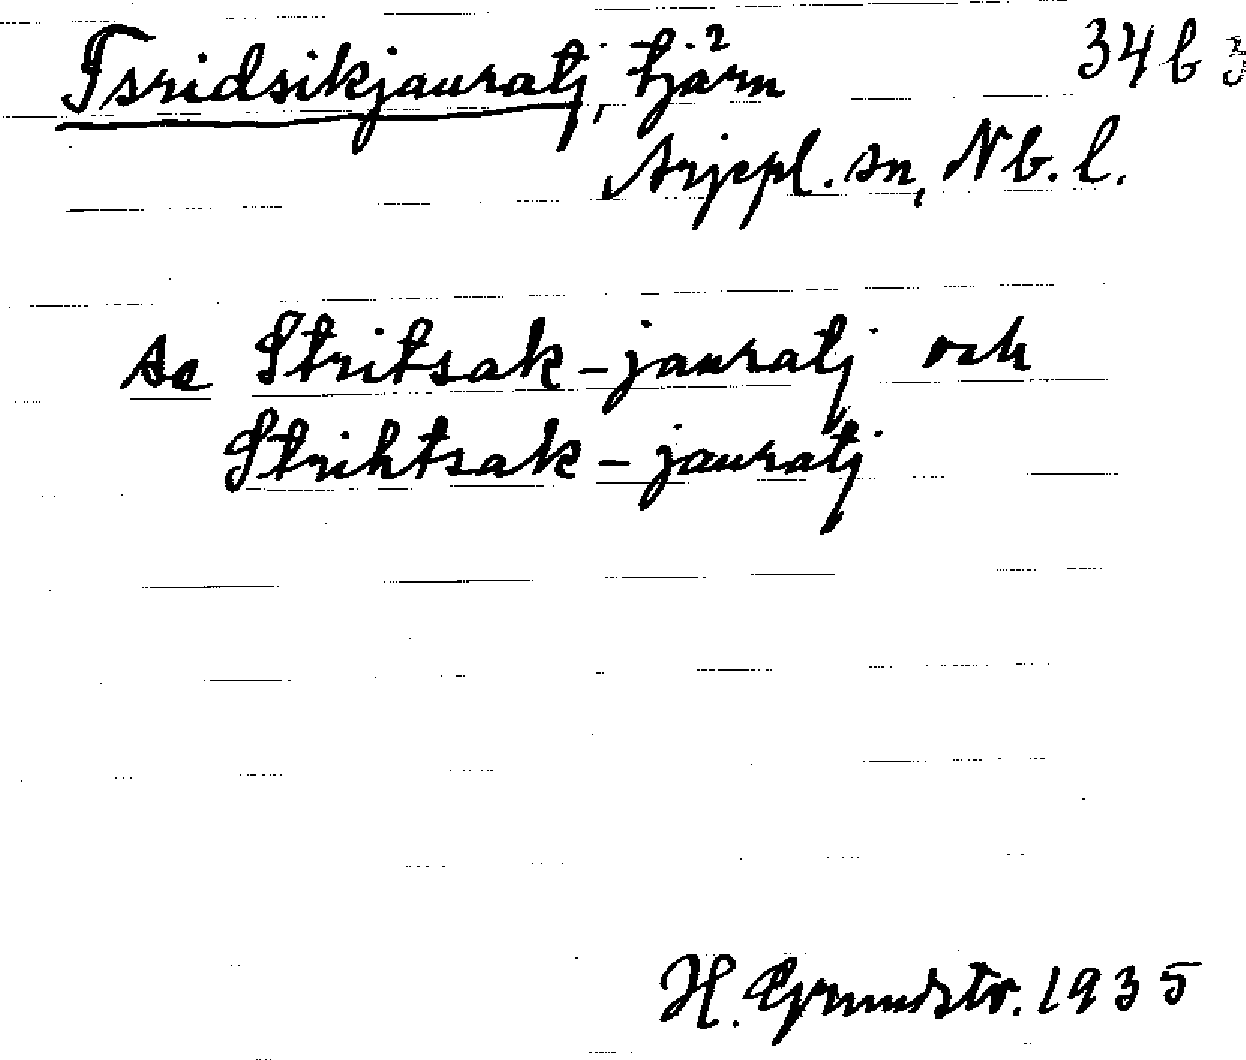 Tsridsikjauratj, tjärn² 34 b 3
Arjepl. sn, Nb. l.
se Stritsak-jauratj och
Strihtsak-jauratj
H. Grundstr. 1935